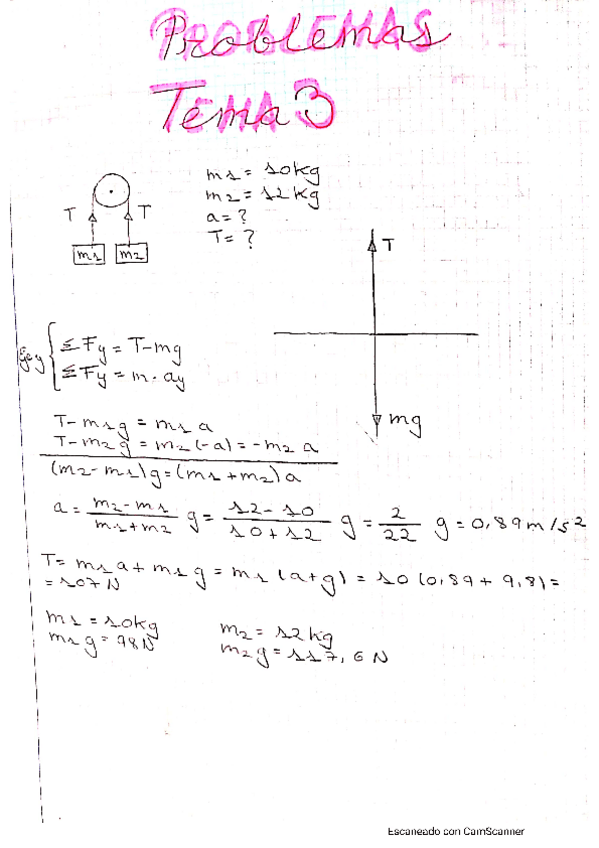 PROBLEMAS
TEMA 3
m1 = 10kg
m2 = 12kg
a = ?
T = ?
T T
m1 m2
T
mg
Eje y { ΣFy = T-mg
ΣFy = m·ay
T-m1g = m1 a
T-m2g = m2 (-a) = -m2 a
(m2-m1)g = (m1+m2)a
a = (m2-m1)/(m1+m2) g = (12-10)/(10+12) g = 2/22 g = 0,89 m/s²
T = m1 a + m1 g = m1 (a+g) = 10 (0,89 + 9,8) =
= 107 N
m1 = 10kg
m1 g = 98N
m2 = 12kg
m2 g = 117,6 N
Escaneado con CamScanner